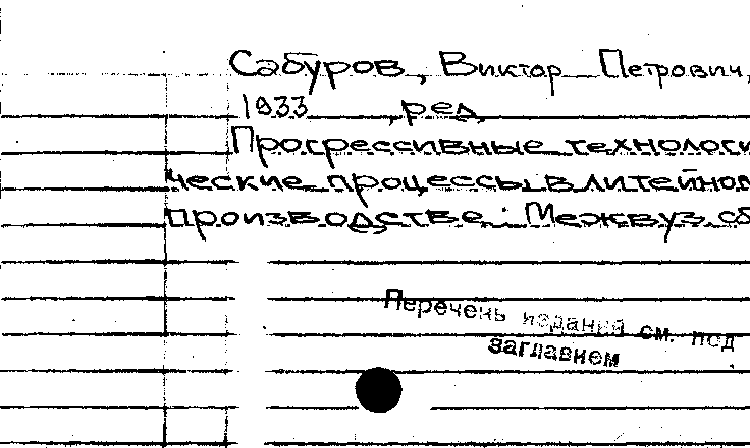 Сабуров, Виктор Петрович,
1933 , ред.
Прогрессивные технологи
ческие процессы в литейном
производстве : Межвуз. сб
Перечень изданий см. под
заглавием